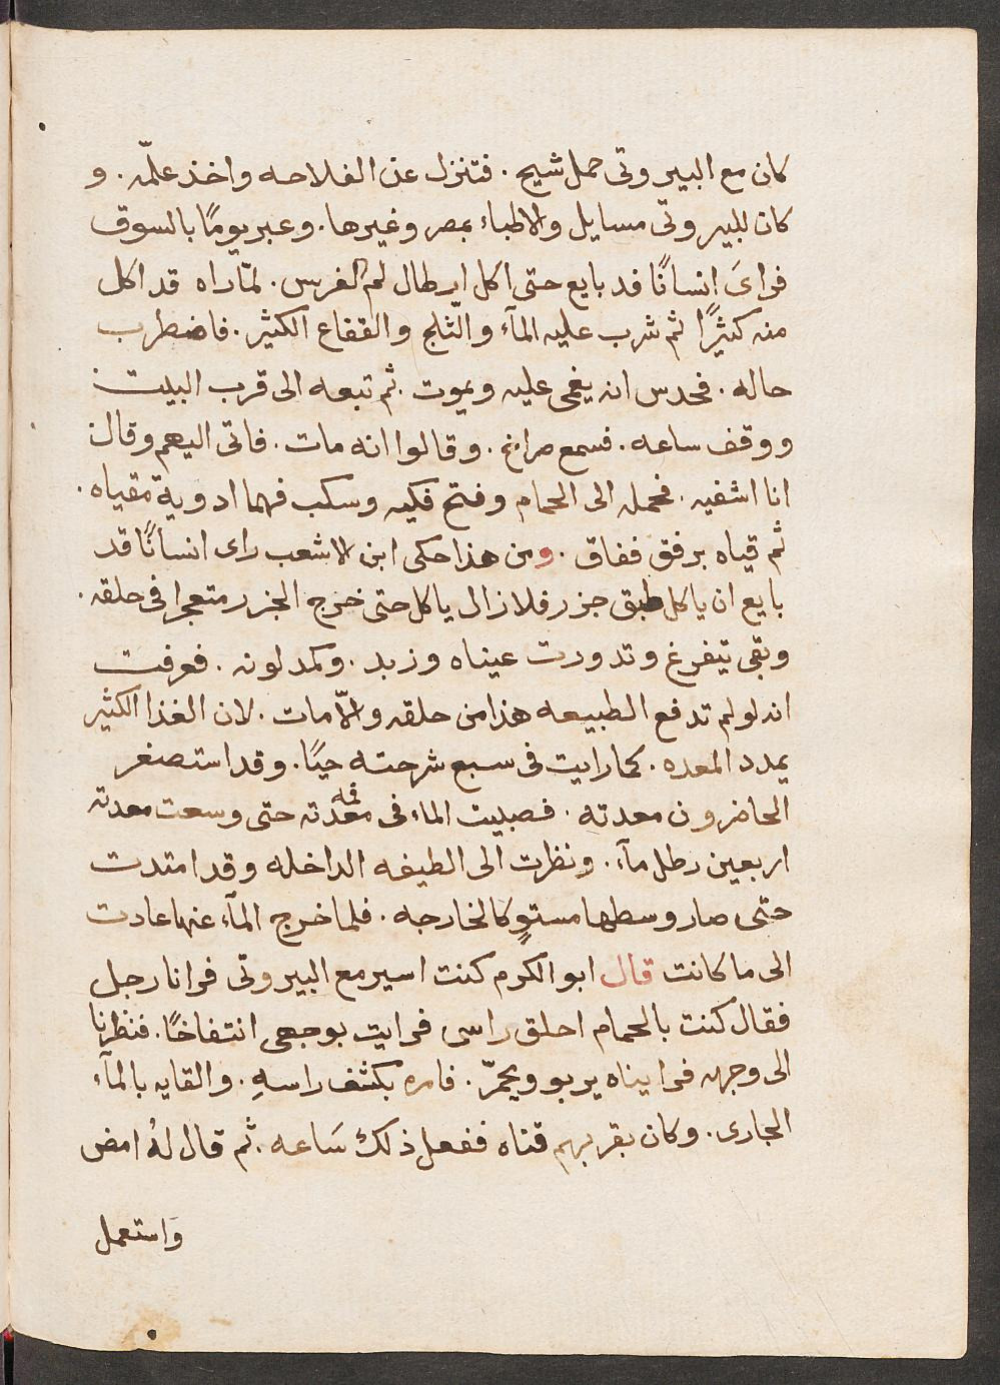 كان مع البيروتى حمل شيح . فتنزل عن الفلاحه واخذ علمّه . و
كان للبيروتى مسايل والاطباء بمصر وغيرها . وعبر يومًا بالسوق
فراىَ انسانًا قد بايع حتى اكل ارطال لحم الفرس . لمّا راه قد اكل
منه كثيرًا ثم شرب عليه المآء والثلج والفقاع الكثير . فاضطرب
حاله . فحدس انه يغمى عليه ويموت . ثم تبعه الى قرب البيت
ووقف ساعه . فسمع صراخ . وقالوا انه مات . فاتى اليهم وقال
انا اشفيه . فحمله الى الحمام وفتح فكيه وسكب فيهما ادوية مقياه .
ثم قياه برفق ففاق . ومن هذا حكى ابن الاشعب راى انسانًا قد
بايع ان ياكل طبق جزر فلا زال ياكل حتى خرج الجزر متعجرا فى حلقه .
وبقى يتفرغ وتدورت عيناه وزبد . وكمد لونه . فعرفت
انه لو لم تدفع الطبيعه هذا من حلقه والاّ مات . لان الغذا الكثير
يمدد المعده . كما رايت فى سبع شرحته حيًا . وقد استصغر
الحاضرون معدته . فصبيت الماء فى فمه معدته حتى وسعت معدته
اربعين رطل مآء . ونظرت الى الطيفه الداخله وقد امتدت
حتى صار وسطها مستوٍ كالخارجه . فلما خرج المآء عنها عادت
الى ما كانت قال ابو الكرم كنت اسير مع البيروتى فرانا رجل
فقال كنت بالحمام احلق راسى فرايت بوجهى انتفاخًا . فنظرنا
الى وجهه فرايناه يربو ويحمرّ . فامره بكشف راسهِ . والقايه بالمآء
الجارى . وكان بقربهم قناه ففعل ذلك سَاعه . ثم قال لهُ امض
واستعمل